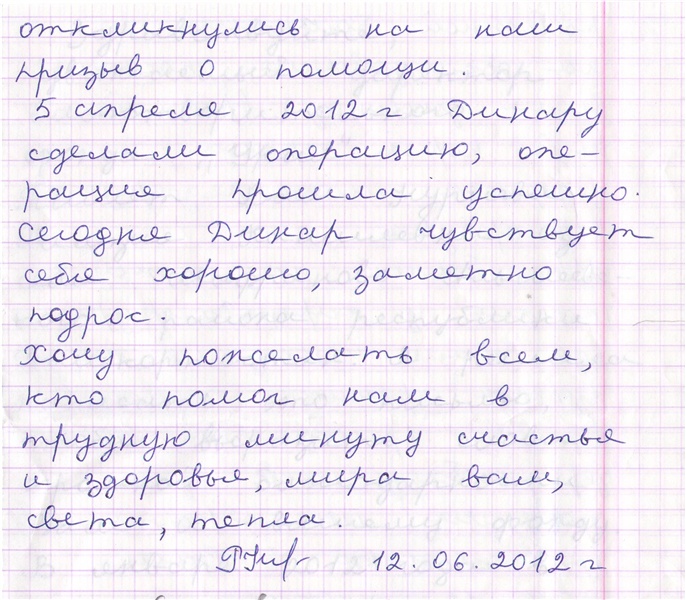 откликнулись на наш
призыв о помощи.
5 апреля 2012 г Динару
сделали операцию, опе-
рация прошла успешно.
Сегодня Динар чувствует
себя хорошо, заметно
подрос.
Хочу пожелать всем,
кто помог нам в
трудную минуту счастья
и здоровья, мира вам,
света, тепла.
12.06.2012 г